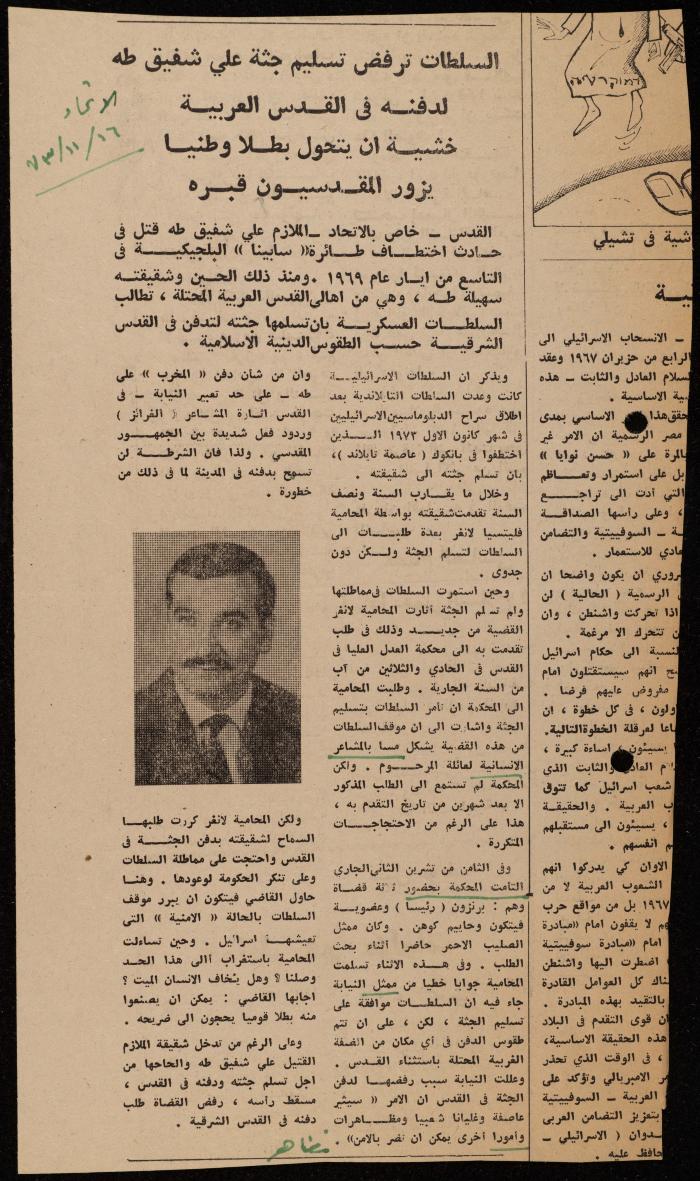 السلطات ترفض تسليم جثة علي شفيق طه
لدفنه فى القدس العربية
خشية ان يتحول بطلا وطنيا
يزور المقدسيون قبره
الاتحاد
٧٣/١١/١٦
القدس - خاص بالاتحاد - الملازم علي شفيق طه قتل فى
حادث اختطاف طائرة « سابينا » البلجيكية فى
التاسع من ايار عام ١٩٦٩ . ومنذ ذلك الحين وشقيقته
سهيلة طه ، وهي من اهالي القدس العربية المحتلة ، تطالب
السلطات العسكرية بان تسلمها جثته لتدفن فى القدس
الشرقية حسب الطقوس الدينية الاسلامية .
ويذكر ان السلطات الاسرائيلية
كانت وعدت السلطات التايلاندية بعد
اطلاق سراح الدبلوماسيين الاسرائيليين
فى شهر كانون الاول ١٩٧٣ الذين
اختطفوا فى بانكوك ( عاصمة تايلاند ) ،
بان تسلم جثته الى شقيقته .
وخلال ما يقارب السنة ونصف
السنة تقدمت شقيقته بواسطة المحامية
فليتسيا لانغر بعدة طلبات الى
السلطات لتسلم الجثة ولكن دون
جدوى .
وحين استمرت السلطات فى مماطلتها
ولم تسلم الجثة أثارت المحامية لانغر
القضية من جديد وذلك فى طلب
تقدمت به الى محكمة العدل العليا فى
القدس فى الحادي والثلاثين من آب
من السنة الجارية . وطلبت المحامية
الى المحكمة ان تأمر السلطات بتسليم
الجثة واشارت الى ان موقف السلطات
من هذه القضية يشكل مسا بالمشاعر
الانسانية لعائلة المرحوم . ولكن
المحكمة لم تستمع الى الطلب المذكور
الا بعد شهرين من تاريخ التقدم به ،
هذا على الرغم من الاحتجاجات
المتكررة .
وفى الثامن من تشرين الثاني الجاري
التأمت المحكمة بحضور ثلاثة قضاة
وهم : برنزون ( رئيسا ) وعضوية
فيتكون وحاييم كوهن . وكان ممثل
الصليب الاحمر حاضرا أثناء بحث
الطلب . وفى هذه الاثناء تسلمت
المحامية جوابا خطيا من ممثل النيابة
جاء فيه ان السلطات موافقة على
تسليم الجثة ، لكن ، على ان تتم
طقوس الدفن فى أي مكان من الضفة
الغربية المحتلة باستثناء القدس .
وعللت النيابة سبب رفضها لدفن
الجثة فى القدس ان الامر « سيثير
عاصفة وغليانا شعبيا ومظاهرات
وأمورا أخرى يمكن ان تضر بالامن » .
مظاهر
وان من شأن دفن « المخرب » على
طه - على حد تعبير النيابة - فى
القدس اثارة المشاعر ( الغرائز )
وردود فعل شديدة بين الجمهور
المقدسي . ولذا فان الشرطة لن
تسمح بدفنه فى المدينة لما فى ذلك من
خطورة .
ولكن المحامية لانغر كررت طلبها
السماح لشقيقته بدفن الجثة فى
القدس واحتجت على مماطلة السلطات
وعلى تنكر الحكومة لوعودها . وهنا
حاول القاضي فيتكون ان يبرر موقف
السلطات بالحالة « الامنية » التي
تعيشها اسرائيل . وحين تساءلت
المحامية باستغراب أالى هذا الحد
وصلنا ؟ وهل يخاف الانسان الميت ؟
اجابها القاضي : يمكن ان يصنعوا
منه بطلا قوميا يحجون الى ضريحه .
وعلى الرغم من تدخل شقيقة الملازم
القتيل علي شفيق طه والحاحها من
اجل تسلم جثته ودفنه فى القدس ،
مسقط رأسه ، رفض القضاة طلب
دفنه فى القدس الشرقية .
اشية فى تشيلي
ية
- الانسحاب الاسرائيلي الى
الرابع من حزيران ١٩٦٧ وعقد
سلام العادل والثابت - هذه
ية الاساسية .
حقق هذا الاساسي بمدى
مصر الرسمية ان الامر غير
المرة على « حسن نوايا »
بل على استمرار وتعاظم
التي أدت الى تراجع
، وعلى رأسها الصداقة
ة - السوفييتية والتضامن
عادي للاستعمار .
روري ان يكون واضحا ان
الرسمية ( الحالية ) لن
اذا تحركت واشنطن ، وان
تتحرك الا مرغمة .
لنسبة الى حكام اسرائيل
ح انهم سيستقتلون امام
مفروض عليهم فرضا .
ولون ، فى كل خطوة ، ان
اعا لعرقلة الخطوة التالية .
يسيئون ، اساءة كبيرة ،
م العادل والثابت الذي
شعب اسرائيل كما تتوق
ب العربية . والحقيقة
، يسيئون الى مستقبلهم
م انفسهم .
الاوان كي يدركوا انهم
الشعوب العربية لا من
١٩٦٧ بل من مواقع حرب
هم لا يقفون امام «مبادرة
امام «مبادرة سوفييتية
اضطرت اليها واشنطن
ناك كل العوامل القادرة
بالتقيد بهذه المبادرة .
ان قوى التقدم فى البلاد
هذه الحقيقة الاساسية،
، فى الوقت الذي تحذر
ر الامبريالي وتؤكد على
العربية - السوفييتية
بتعزيز التضامن العربى
دوان ( الاسرائيلي -
حافظ عليه .